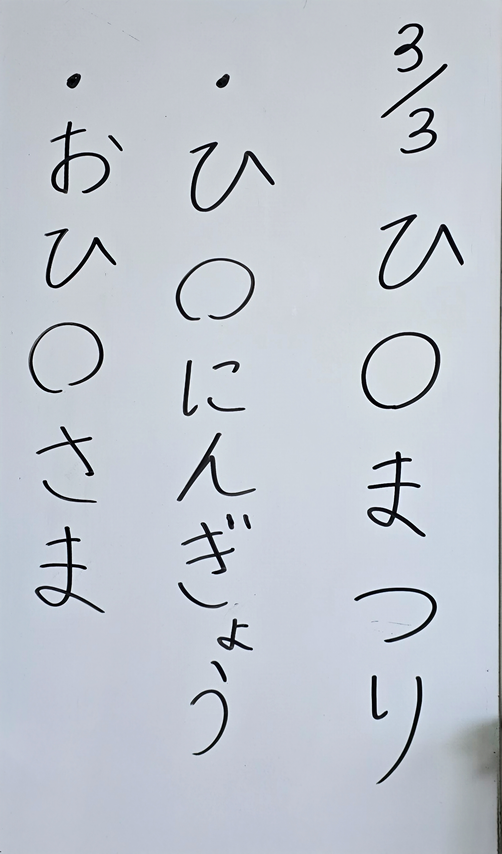 3/3 ひ〇まつり
・ひ〇にんぎょう
・おひ〇さま